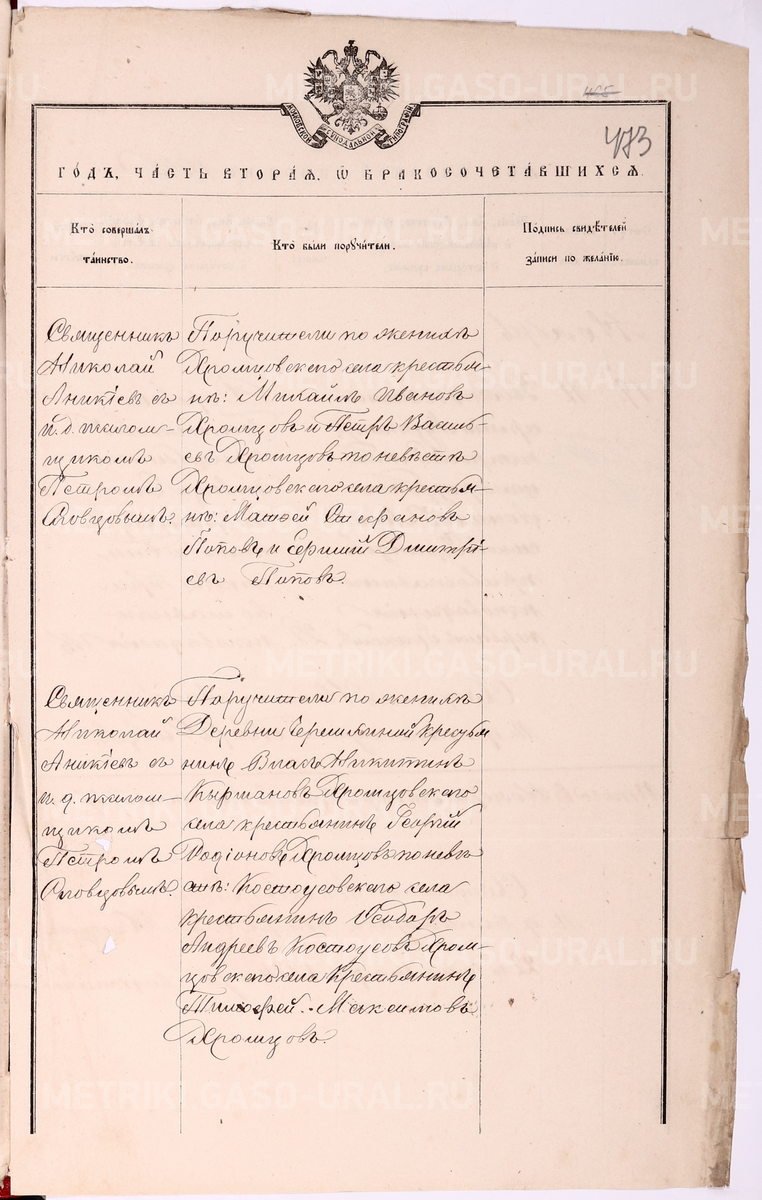 455
473
МОСКОВСКОЙ СѴНОДАЛЬНОЙ ТИПОГРАФІИ
ГОДЪ, ЧАСТЬ ВТОРАЯ, Ѡ БРАКОСОЧЕТАВШИХСЯ.
Кто совершалъ таинство.
Кто были поручители.
Подпись свидѣтелей записи по желанію.
Священникъ
Николай
Аникіевъ съ
и. д. псалом-
щикомъ
Петромъ
Словцовымъ.
Поручители по женихѣ
Хромцовскаго села крестья-
не: Михаилъ Ивановъ
Хромцовъ и Петръ Василь-
евъ Хромцовъ по невѣстѣ
Хромцовскаго села крестья-
не: Матѳей Стефановъ
Поповъ и Сергій Дмитрі-
евъ Поповъ.
Священникъ
Николай
Аникіевъ съ
и. д. псалом-
щикомъ
Петромъ
Словцовымъ.
Поручители по женихѣ
Деревни крестья
нинъ Власъ Никитинъ
Хромцовскаго
села крестьянинъ Георгій
Родіоновъ Хромцовъ по невѣ
стѣ: Костоусовскаго села
крестьянинъ Ѳеодоръ
Андреевъ Костоусовъ Хром-
цовскаго села крестьянинъ
Тимофей Максимовъ
Хромцовъ.
METRIKI.GASO-URAL.RU